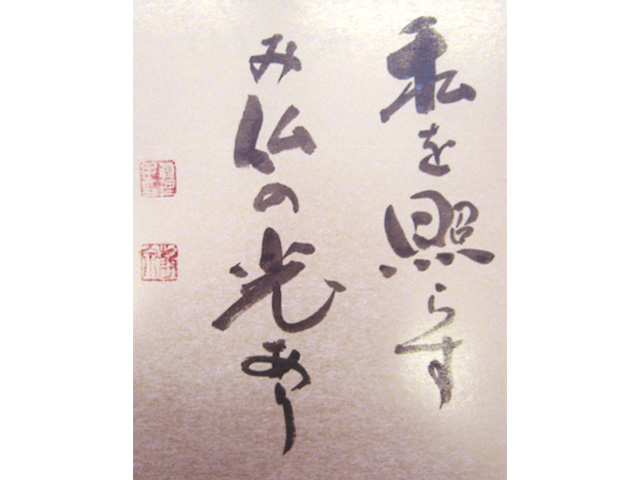 私を照らす
み仏の光あり